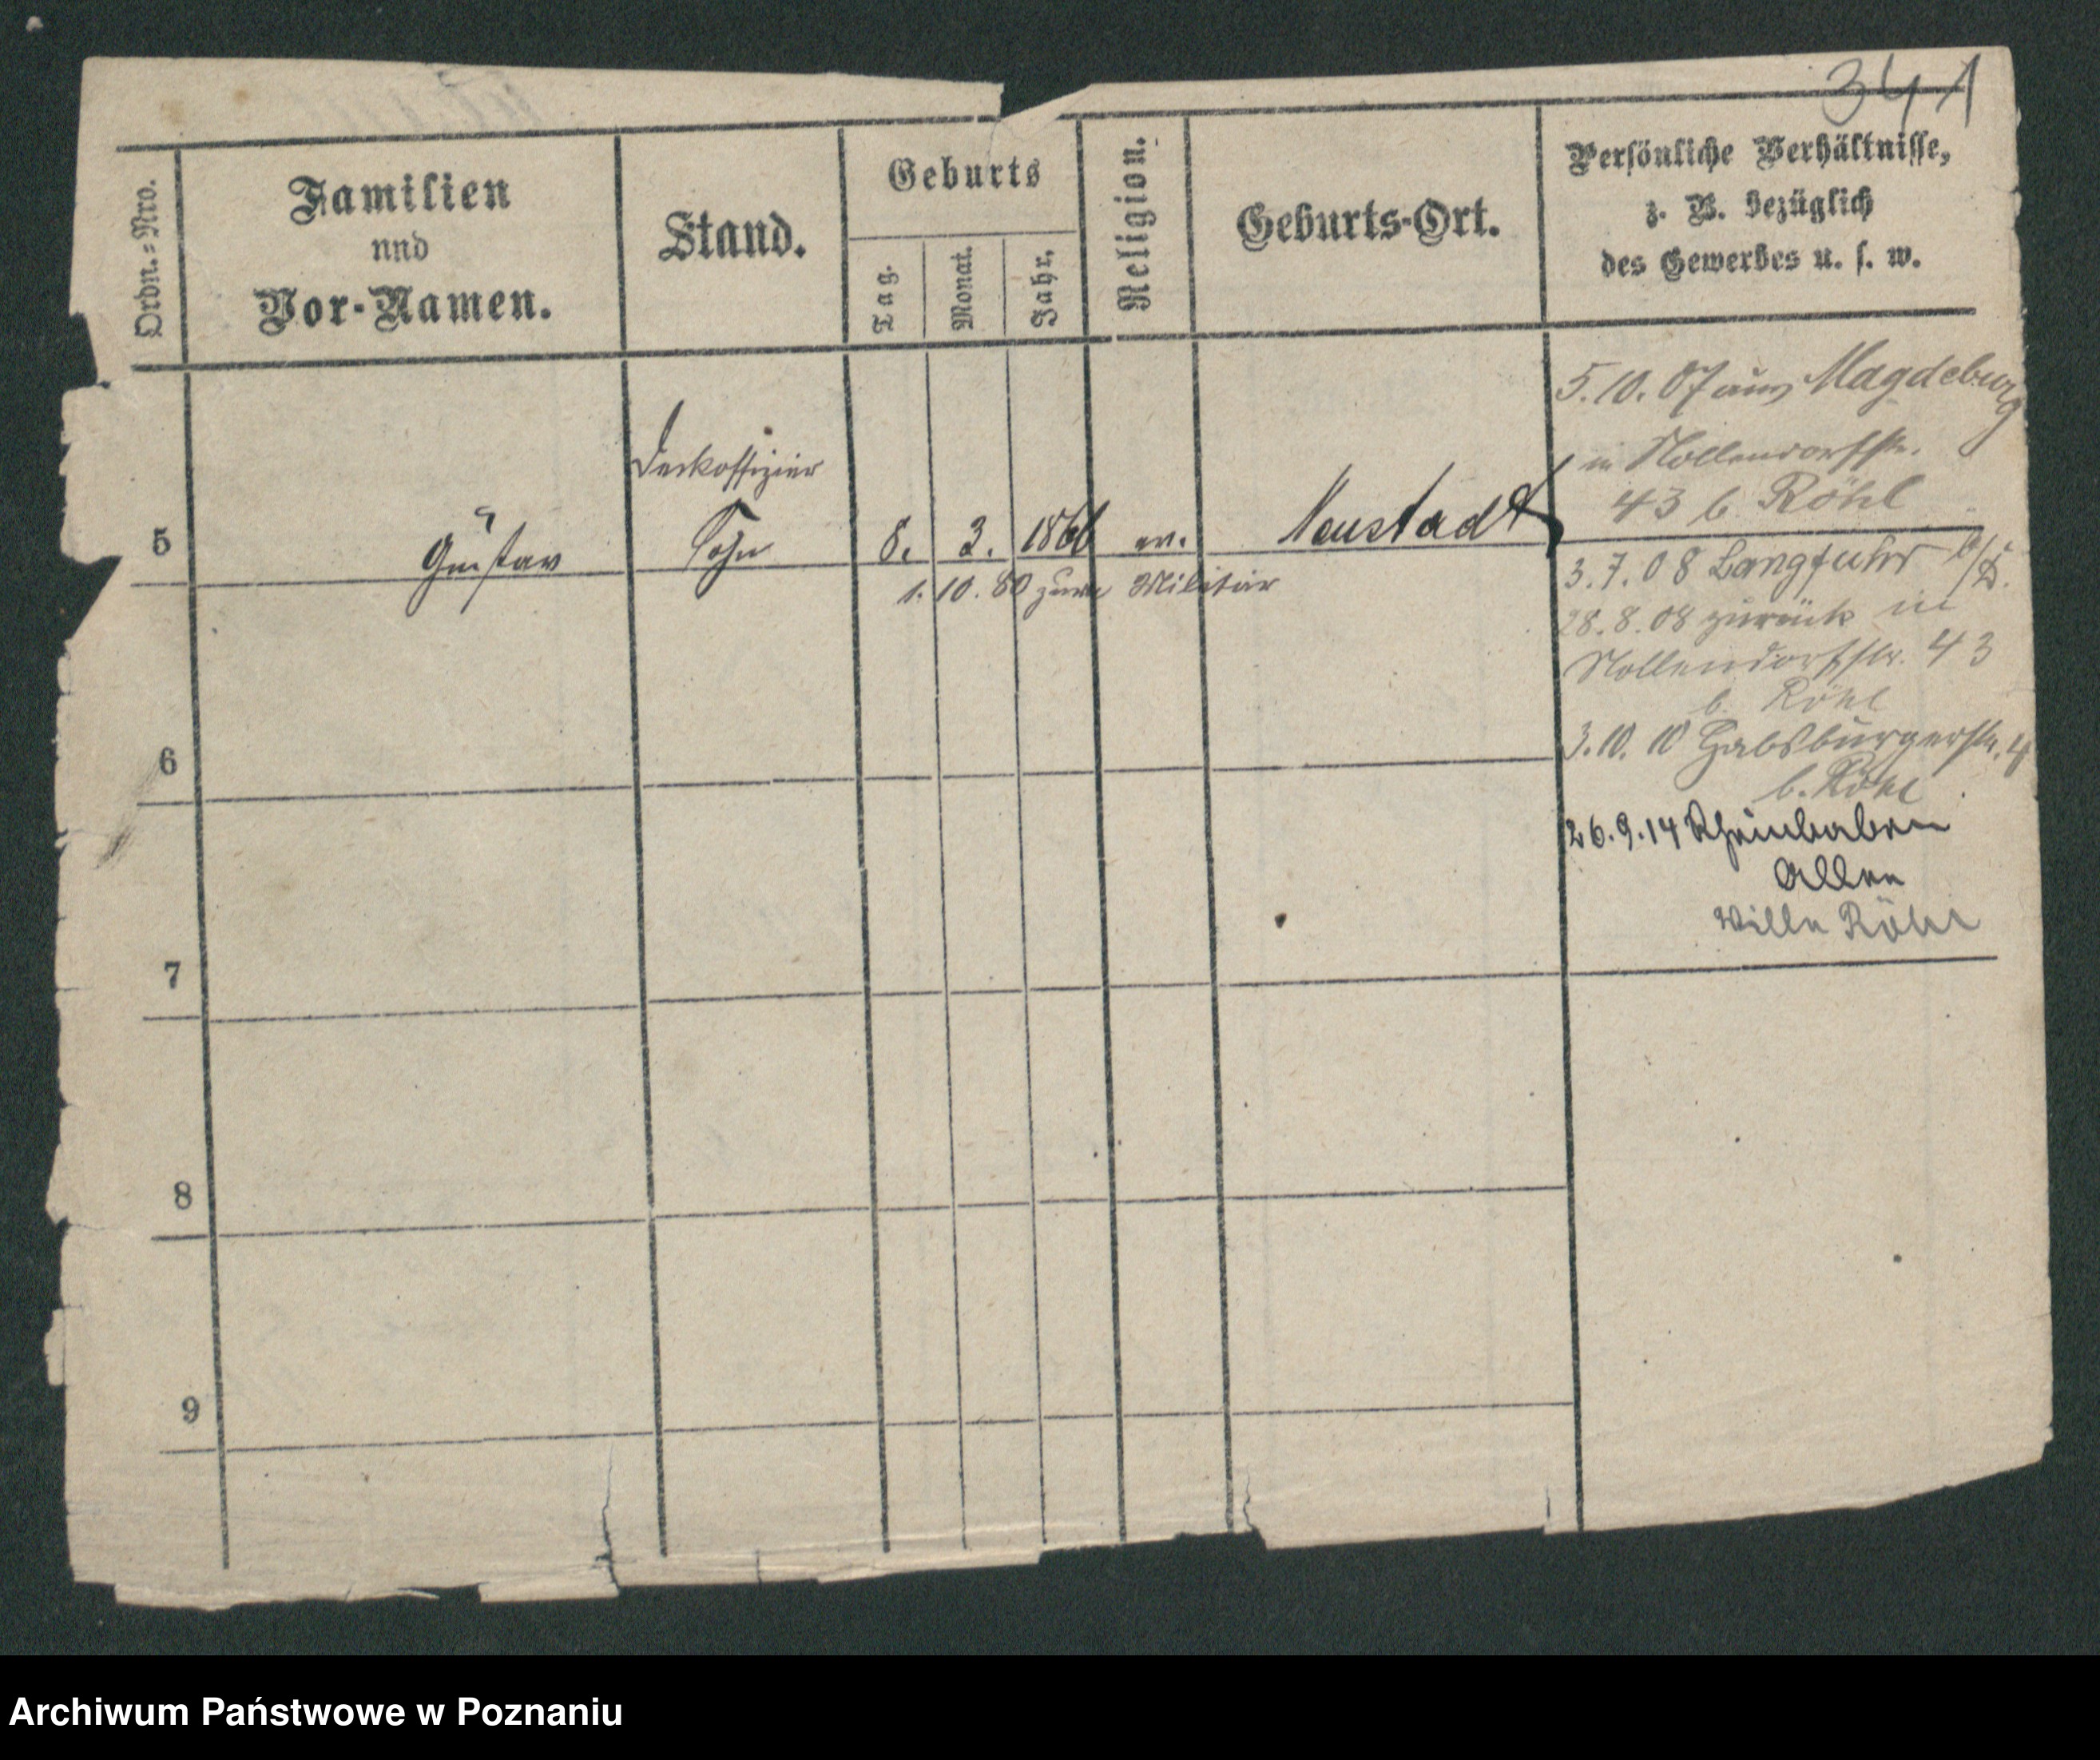 341
Ordn.=Nro.
Familien
und
Vor-Namen.
Stand.
Geburts
Tag.
Monat.
Jahr.
Religion.
Geburts-Ort.
Persönliche Verhältnisse,
z. B. bezüglich
des Gewerbes u. s. w.
5
Gustav
Deckoffizier
Sohn
8. 3. 1866 ev. Neustadt
1. 10. 80 zum Militär
5. 10. 07 aus Magdeburg
in Nollendorfstr.
43 b. Röhl
3. 7. 08 Langfuhr b/D.
28. 8. 08 zurück in
Nollendorfstr. 43
b. Röhl
3. 10. 10 Habsburgerstr. 4
b. Röhl
26. 9. 14 Rheinbaben
Allee
Villa Röhl
6
7
8
9
Archiwum Państwowe w Poznaniu